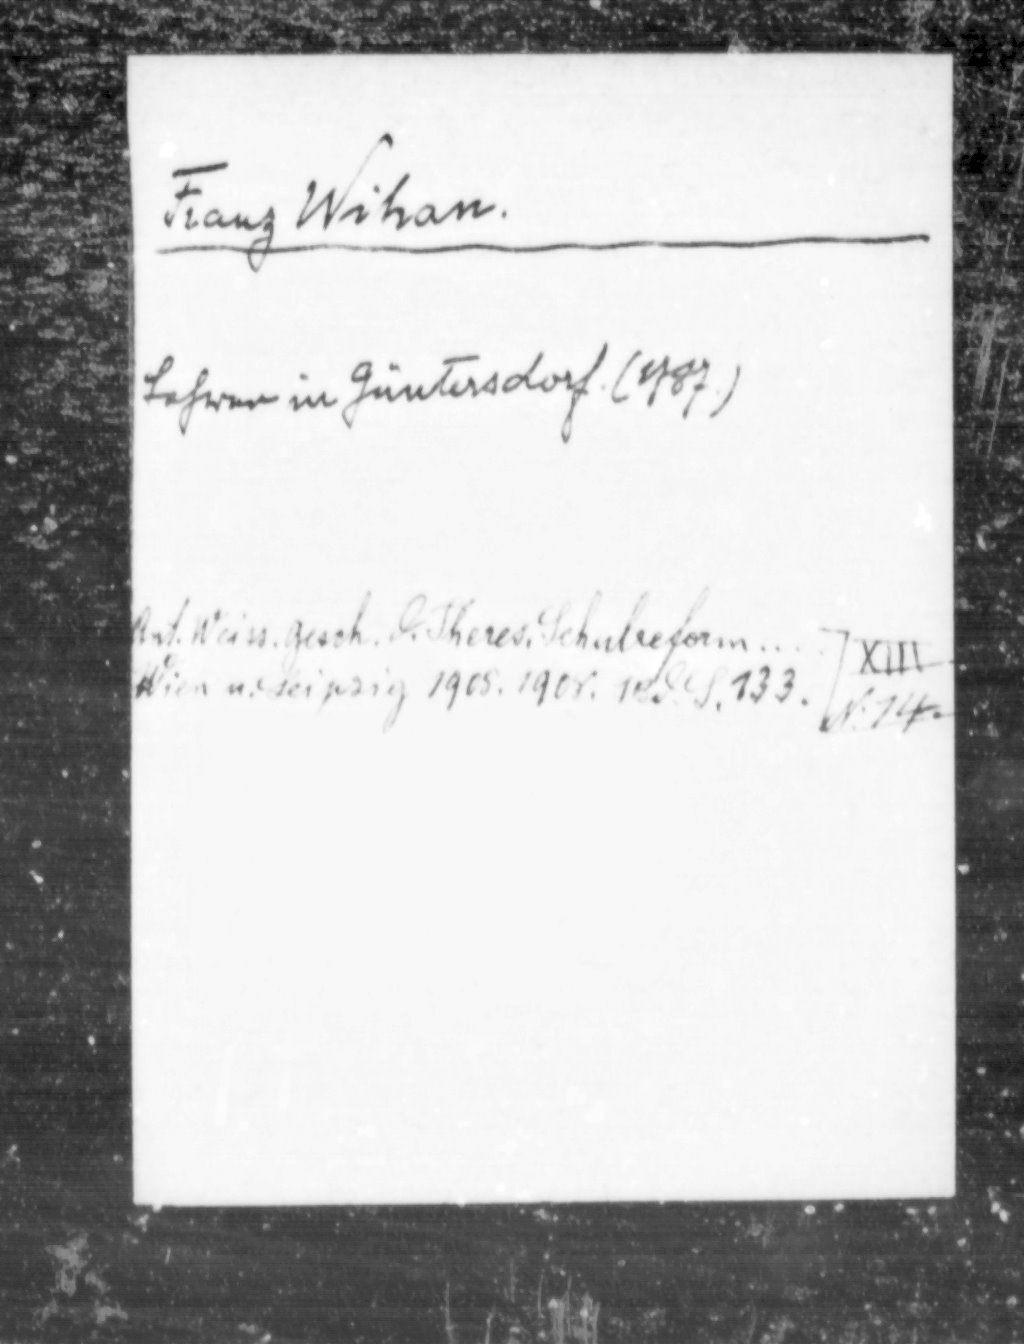 Franz Wihan.
Lehrer in Güntersdorf. (1787.)
Ant. Weiss. Gesch. d. Theres. Schulreform....
Wien u. Leipzig 1905. 1908. S. 133.
XIII
N. 14.